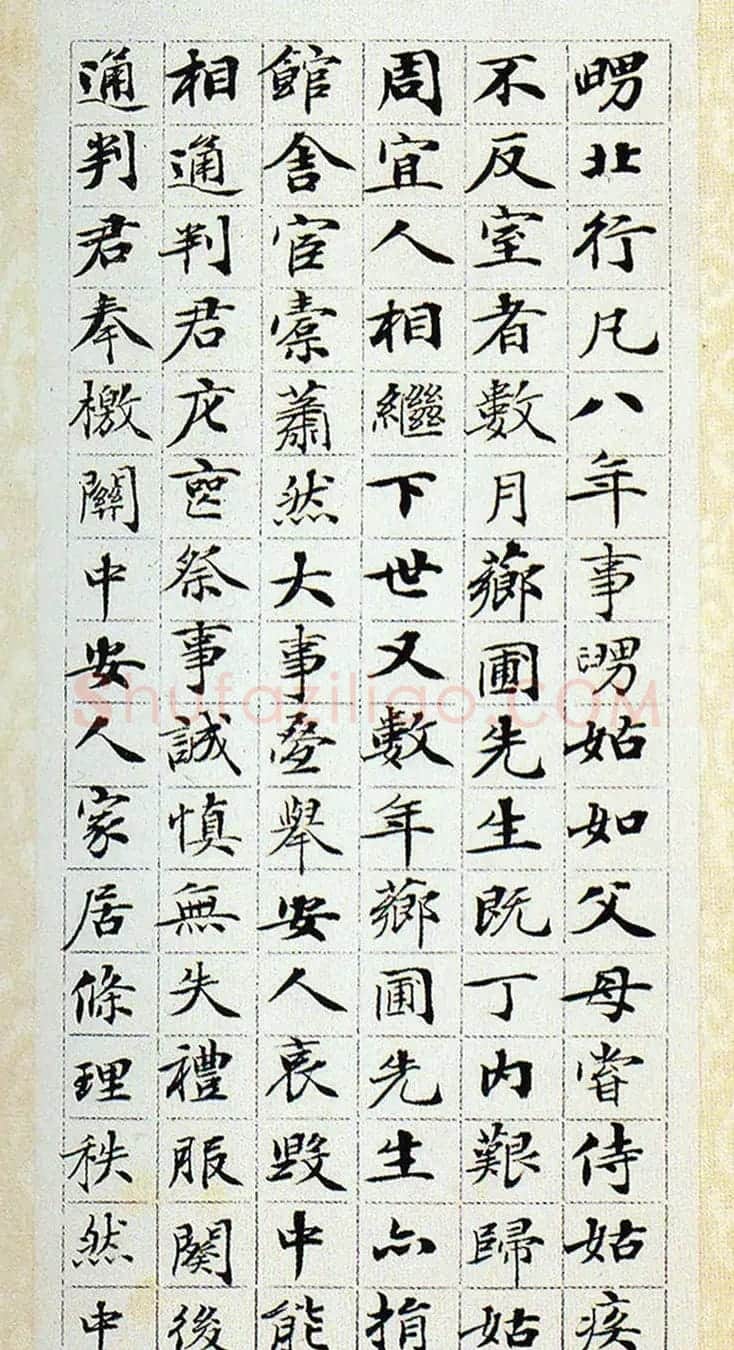 舅北行凡八年事舅姑如父母嘗侍姑疾
不反室者數月薌圃先生既丁內艱歸姑
周宜人相繼下世又數年薌圃先生亦捐
館舍宦橐蕭然大事疊舉安人哀毀中能
相通判君庀喪祭事誠慎無失禮服闋後
通判君奉檄關中安人家居條理秩然中
Shufaziliao.COM